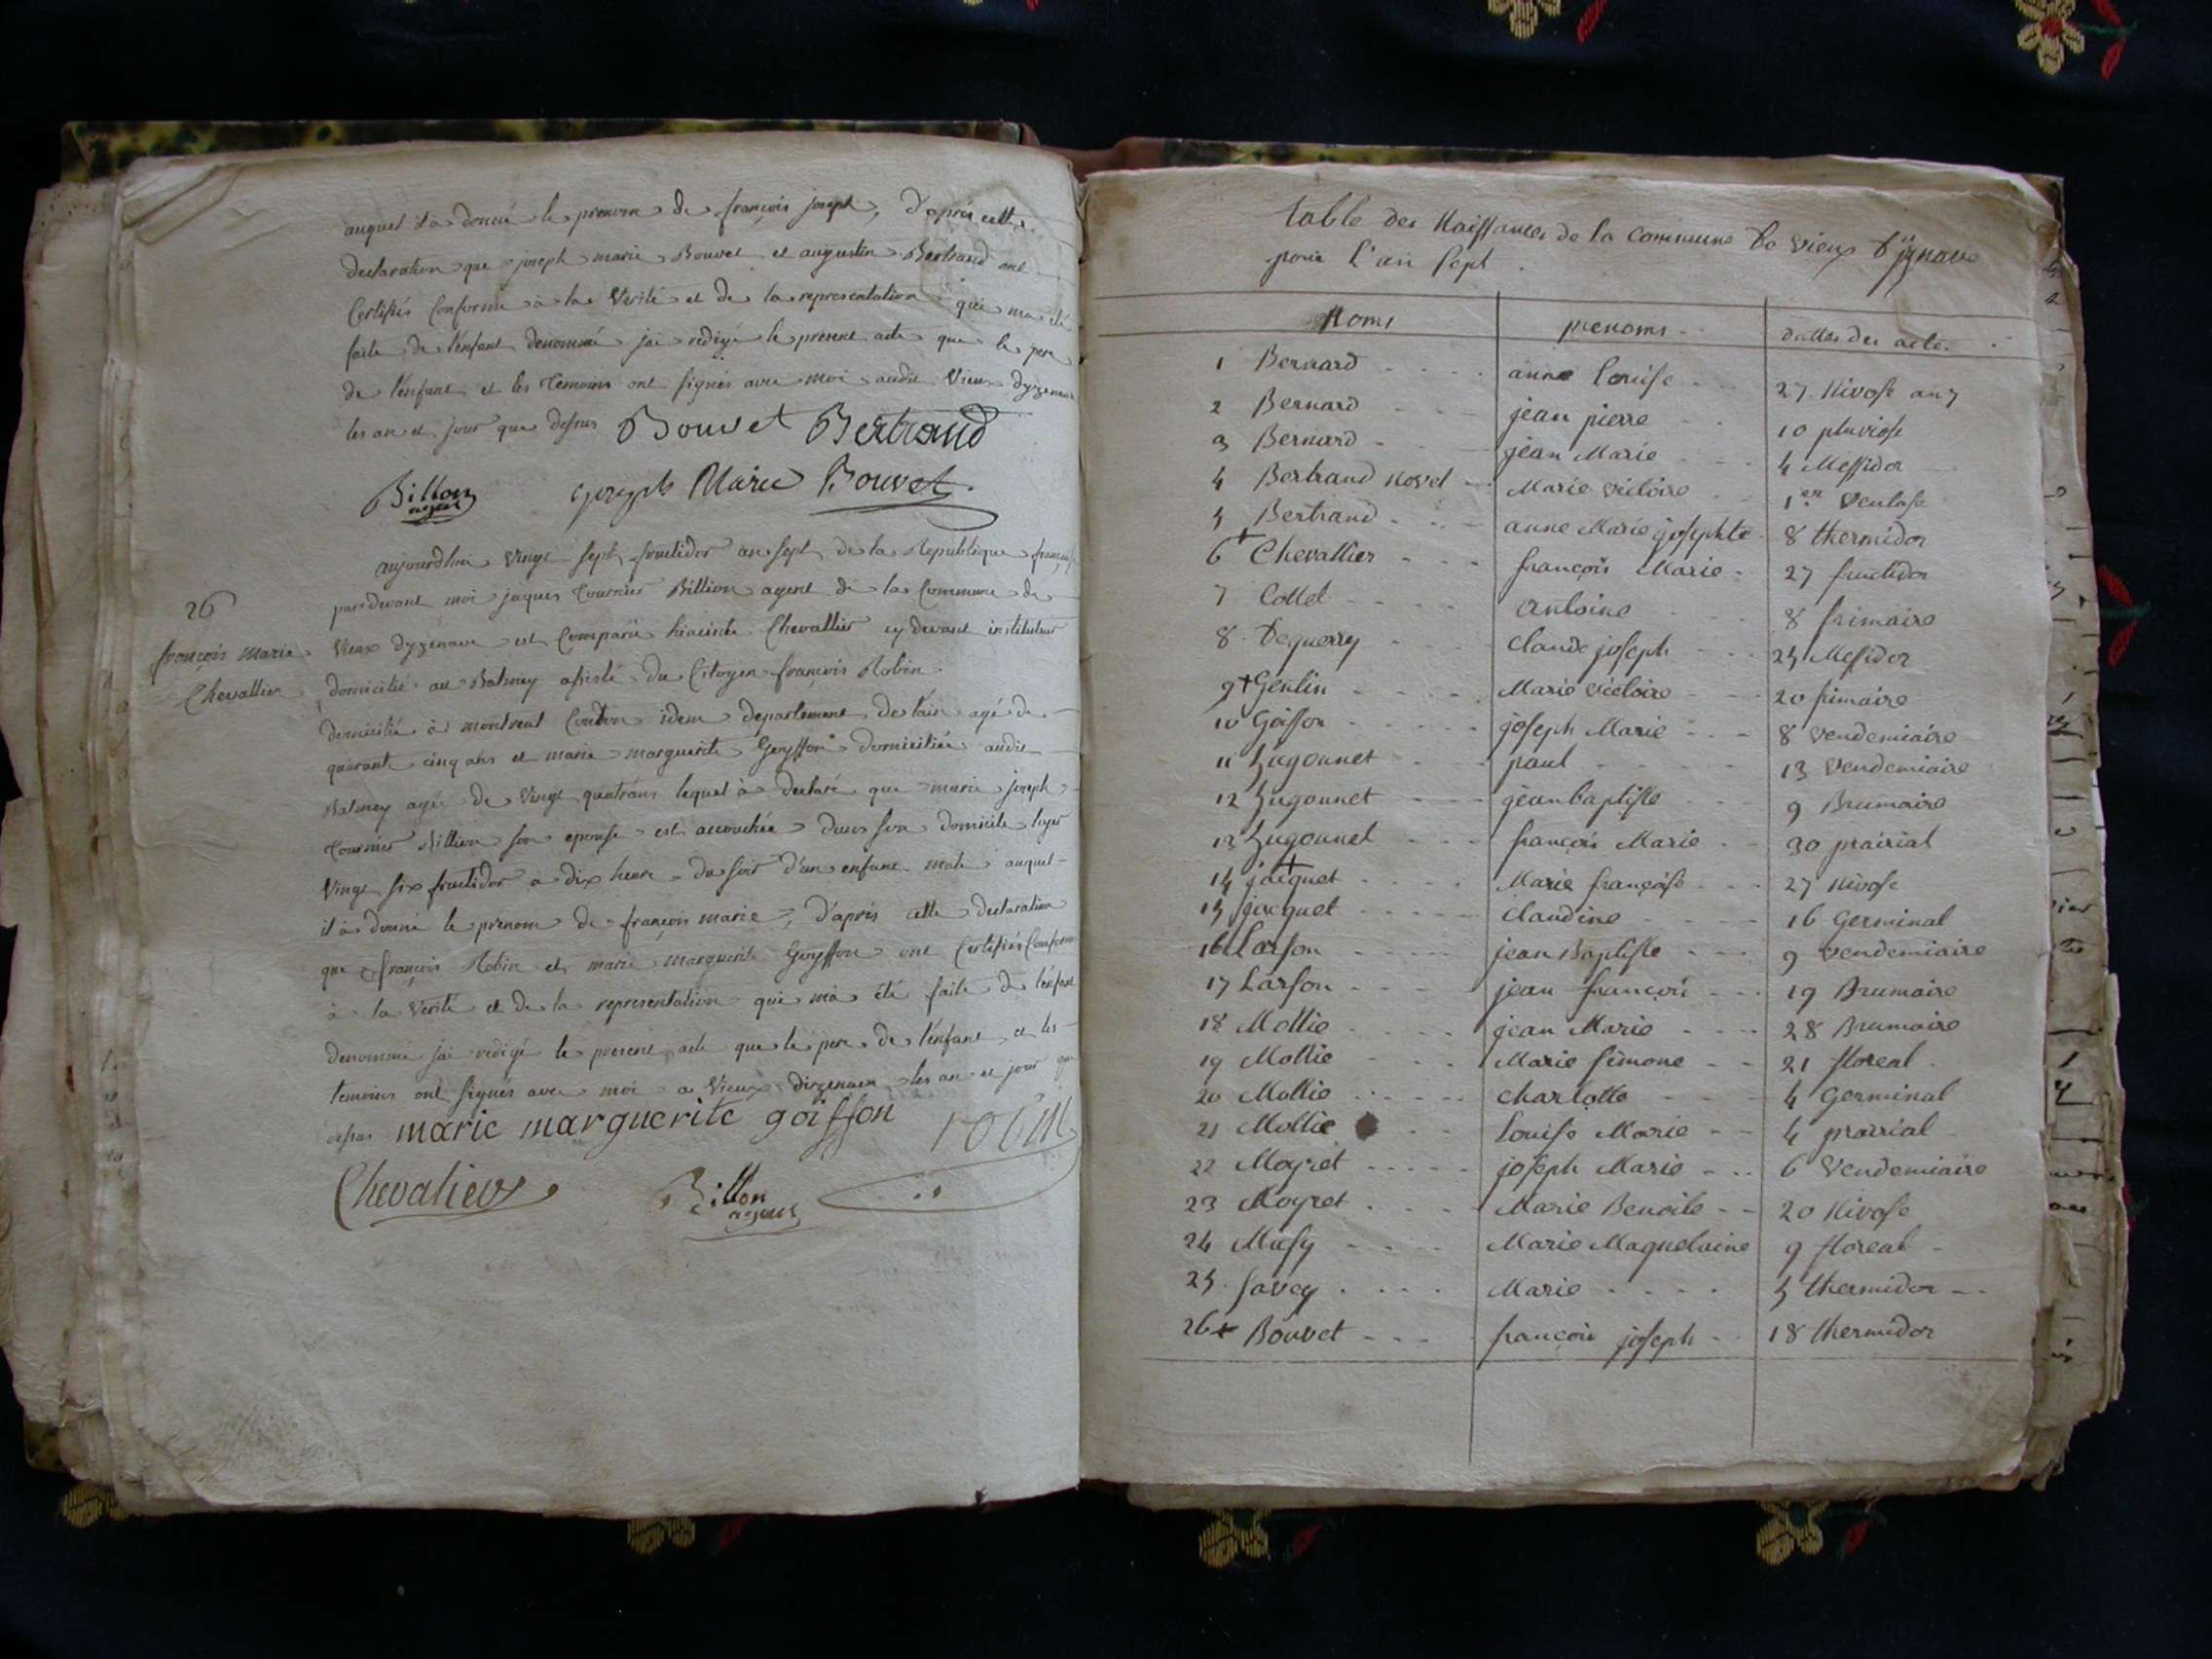 auquel il a donné le prenom de françois joseph, d'après cette
declaration que joseph marie Bouvet et augustin Bertrand ont
Certifiés Conforme à la Verité et de la representation qui ma été
faite de l'enfant denommé jai redigé le present acte que le pere
de l'enfant et les temoins ont signés avec moi audit Vieux dyzenave
les an et jour que dessus Bouvet Bertrand
Billon agent joseph Marie Bouvet
aujourdhui Vingt sept fructidor an sept de la Republique française
26
pardevant moi jaques tournier Billion agent de la Commune de
françois marie
Vieux dyzenave est Comparu hiacinte Chevallier cydevant instituteur
Chevallier
domicilié au Balmey assisté du Citoyen françois Robin
domicilié à montreal Canton idem departement de lain agé de
quarante cinq ans et marie marguerite Goyffon domiciliée audit
Balmey agée de Vingt quatrans lequel à declaré que marie joseph
tournier Billion son epouse est accouchée dans son domicile hyer
Vingt six fructidor a dix heure du soir d'un enfant male auquel
il à donné le prenom de françois marie, d'après cette declaration
que françois Robin et marie marguerite Goyffon ont Certifiés Conforme
à la Verité et de la representation qui ma été faite de l'enfant
denommé jai redigé le present acte que le pere de l'enfant et les
temoins ont signés avec moi a Vieux dizenave les an et jour que
dessus marie marguerite goiffon robin
Chevalier Billon agent
table des Naissances de la commune de vieux d'jznave
pour l'an sept.
Noms prenoms dattes des actes
1 Bernard anne louise 27 Nivose an 7
2 Bernard jean pierre 10 pluviose
3 Bernard jean Marie 4 Messidor
4 Bertrand novel Marie victoire 1er Ventose
5 Bertrand anne Marie josephte 8 thermidor
6 + Chevallier françois Marie 27 fructidor
7 Collet antoine 8 frimaire
8 Deguerry Claude joseph 25 Messidor
9 + Genlin Marie victoire 20 frimaire
10 Goiffon joseph Marie 8 vendemiaire
11 hugonnet paul 13 vendemiaire
12 hugonnet jean baptiste 9 Brumaire
13 hugonnet françois Marie 30 prairial
14 jacquet + Marie françoise 27 Nivose
15 jacquet Claudine 16 Germinal
16 Larson jean Baptiste 9 vendemiaire
17 Larson jean françois 19 Brumaire
18 Mollie jean Marie 28 Brumaire
19 Mollie Marie simone 21 floreal
20 Mollie charlotte 4 Germinal
21 Mollie louise Marie 4 prairial
22 Moyret joseph Marie 6 Vendemiaire
23 Moyret Marie Benoite 20 Nivose
24 Musy Marie Maguelaine 9 floreal
25 savey Marie 5 thermidor
26 + Bouvet françois joseph 18 thermidor